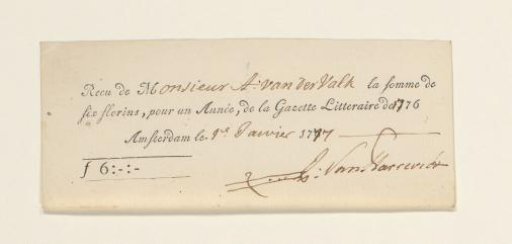 Recu de Monsieur A: van der Valk la somme de
six florins, pour un Année, de la Gazette Litteraire de 1776
Amsterdam le 1r Janvier 1777
f 6:-:-